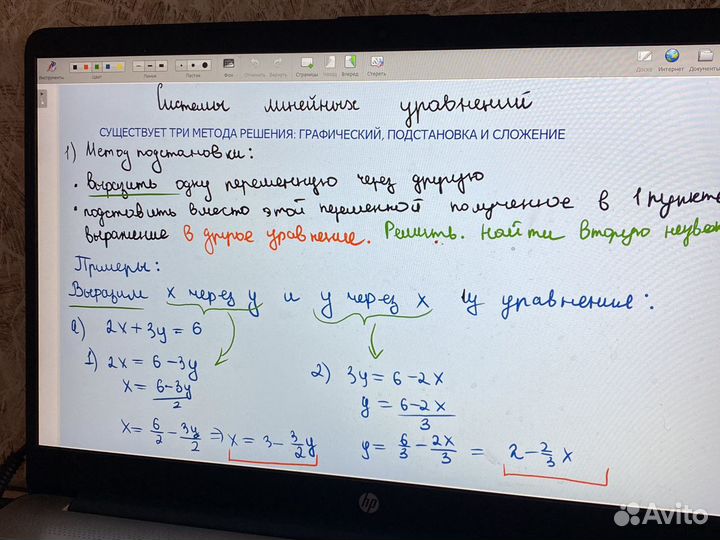 Инструменты Цвет Линии Ластик Фон Отменить Вернуть Страницы Назад Вперед Стереть Доске Интернет Документы
Системы линейных уравнений
СУЩЕСТВУЕТ ТРИ МЕТОДА РЕШЕНИЯ: ГРАФИЧЕСКИЙ, ПОДСТАНОВКА И СЛОЖЕНИЕ
1) Метод подстановки:
• Выразить одну переменную через другую
• подставить вместо этой переменной полученное в 1 пункте
выражение в другое уравнение. Решить. Найти вторую неизв
Примеры:
Выразим x через y и y через x из уравнения:
a) 2x + 3y = 6
1) 2x = 6 - 3y
x = (6-3y)/2
x = 6/2 - 3y/2 ⇒ x = 3 - 3/2 y
2) 3y = 6 - 2x
y = (6-2x)/3
y = 6/3 - 2x/3 = 2 - 2/3 x
hp
Avito